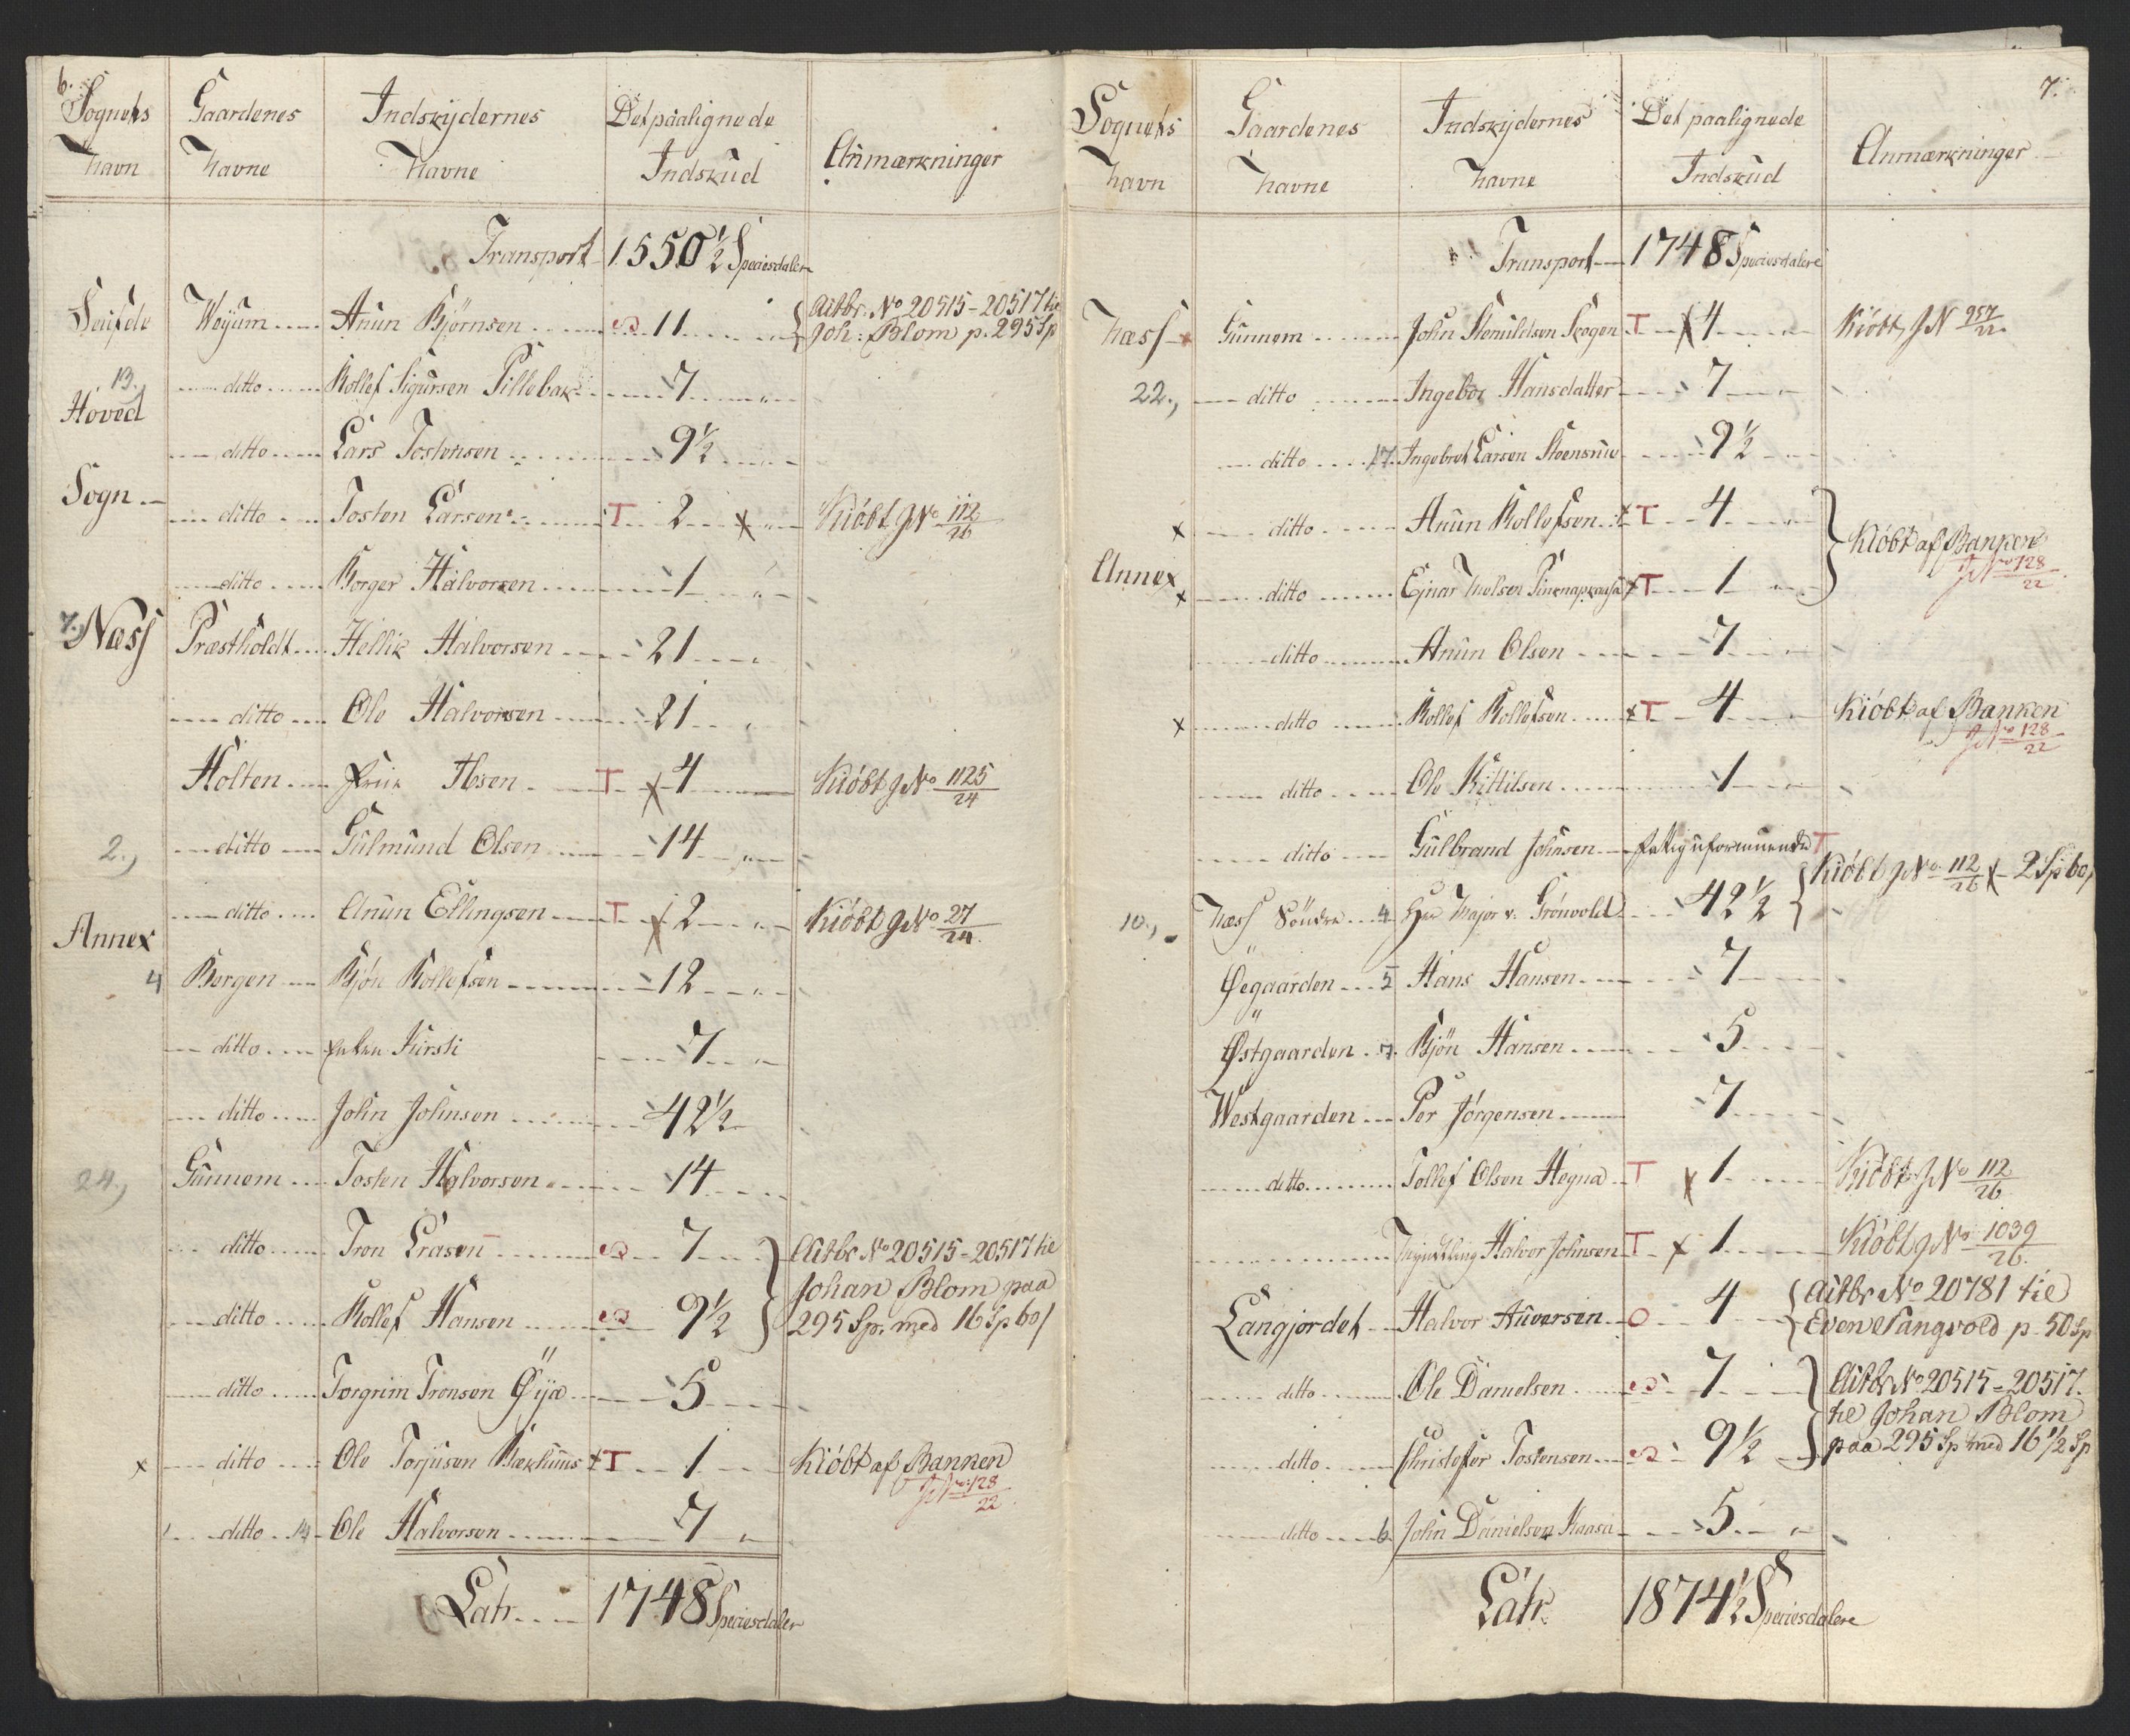 6.
Sognets Navn | Gaardenes Navne | Indskydernes Navne | Det paalignede Indskud | Anmærkninger
Transport 1550½ Speciesdaler
Seufde | Weÿum | Anun Bjørnsen | 11 | Autbr. No 20515-20517 til Joh: Blom p. 295 Sp
13. Hoved | ditto | Rollef Sigursen Pillebak | 7
ditto | Lars Tostensen | 9½
Sogn | ditto | Tosten Larsen | T 2 x | Kiöbt JNo 112/26
ditto | Borger Halvorsen | 1
7. Næss | Præstholdt | Hellik Halvorsen | 21
ditto | Ole Halvorsen | 21
Holten | Ibsen | T x 4 | Kiöbt JNo 1125/24
2., | ditto | Gulmund Olsen | 14
Annex | ditto | Anun Ellingsen | T x 2 | Kiöbt JNo 27/24.
4 | Borgen | Bjön Rollefsen | 12
ditto | Enken Kirsti | 7
ditto | John Johnsen | 42½
24., | Gunnem | Tosten Halvorsen | 14
ditto | Tron Lrasen | 7 | Autbr No 20515-20517 til
ditto | Rollef Hansen | 9½ | Johan Blom paa 295 Sp. med 16 Sp 60/
ditto | Torgrim Tronsen Öija | 5
x | ditto | Ole Torjusen Bækhuus | x T 1 | Kiöbt af Banken JNo 128/22
ditto 14 | Ole Halvorsen | 7
Latr. 1748 Speciesdaler
7.
Sognets Navn | Gaardenes Navne | Indskydernes Navne | Det paalignede Indskud | Anmærkninger
Transport 1748 Speciesdalere
Næss | Gunnem | John Skogen | T x 4 | Kiöbt JN 957/22
22., | ditto | Ingebor Hansdatter | 7
ditto 17. | Ingebret Larsen | 9½
x | ditto | Anun Rollefsen | x T 4 | Kiöbt af Banken JNo 128/22
Annex x | ditto | Ejnar | x T 1
ditto | Anun Olsen | 7
x | ditto | Rollef Rollefsen | x T 4 | Kiöbt af Banken JNo 128/22
ditto | Ole Kittilsen | 1
ditto | Gulbrand Johnsen | fattig uformuende T
10., | Næss Söndre 4 | Hr Major v. Grönvold | 42½ | Kiöbt JNo 112/26 x 2 Sp 60/
Øegaarden 5 | Hans Hansen | 7
Østgaarden 7. | Bjön Hansen | 5
Westgaarden | Per Jörgensen | 7
ditto | Tollef Olsen Hegna | T x 1 | Kiöbt JNo 112/26
Halvor Johnsen | T x 1 | Kiöbt JNo 1039/26.
Langjordet | Halvor Auversen | O 4 | Autbr No 20781 til Even Langvold p. 50 Sp
ditto | Ole Danielsen | 7 | Autbr No 20515-20517.
ditto | Christofer Tostensen | 9½ | til Johan Blom paa 295 Sp med 16½ Sp
ditto 6 | John Danielsen Kaasa | 5
Latr. 1874½ Speciesdalere